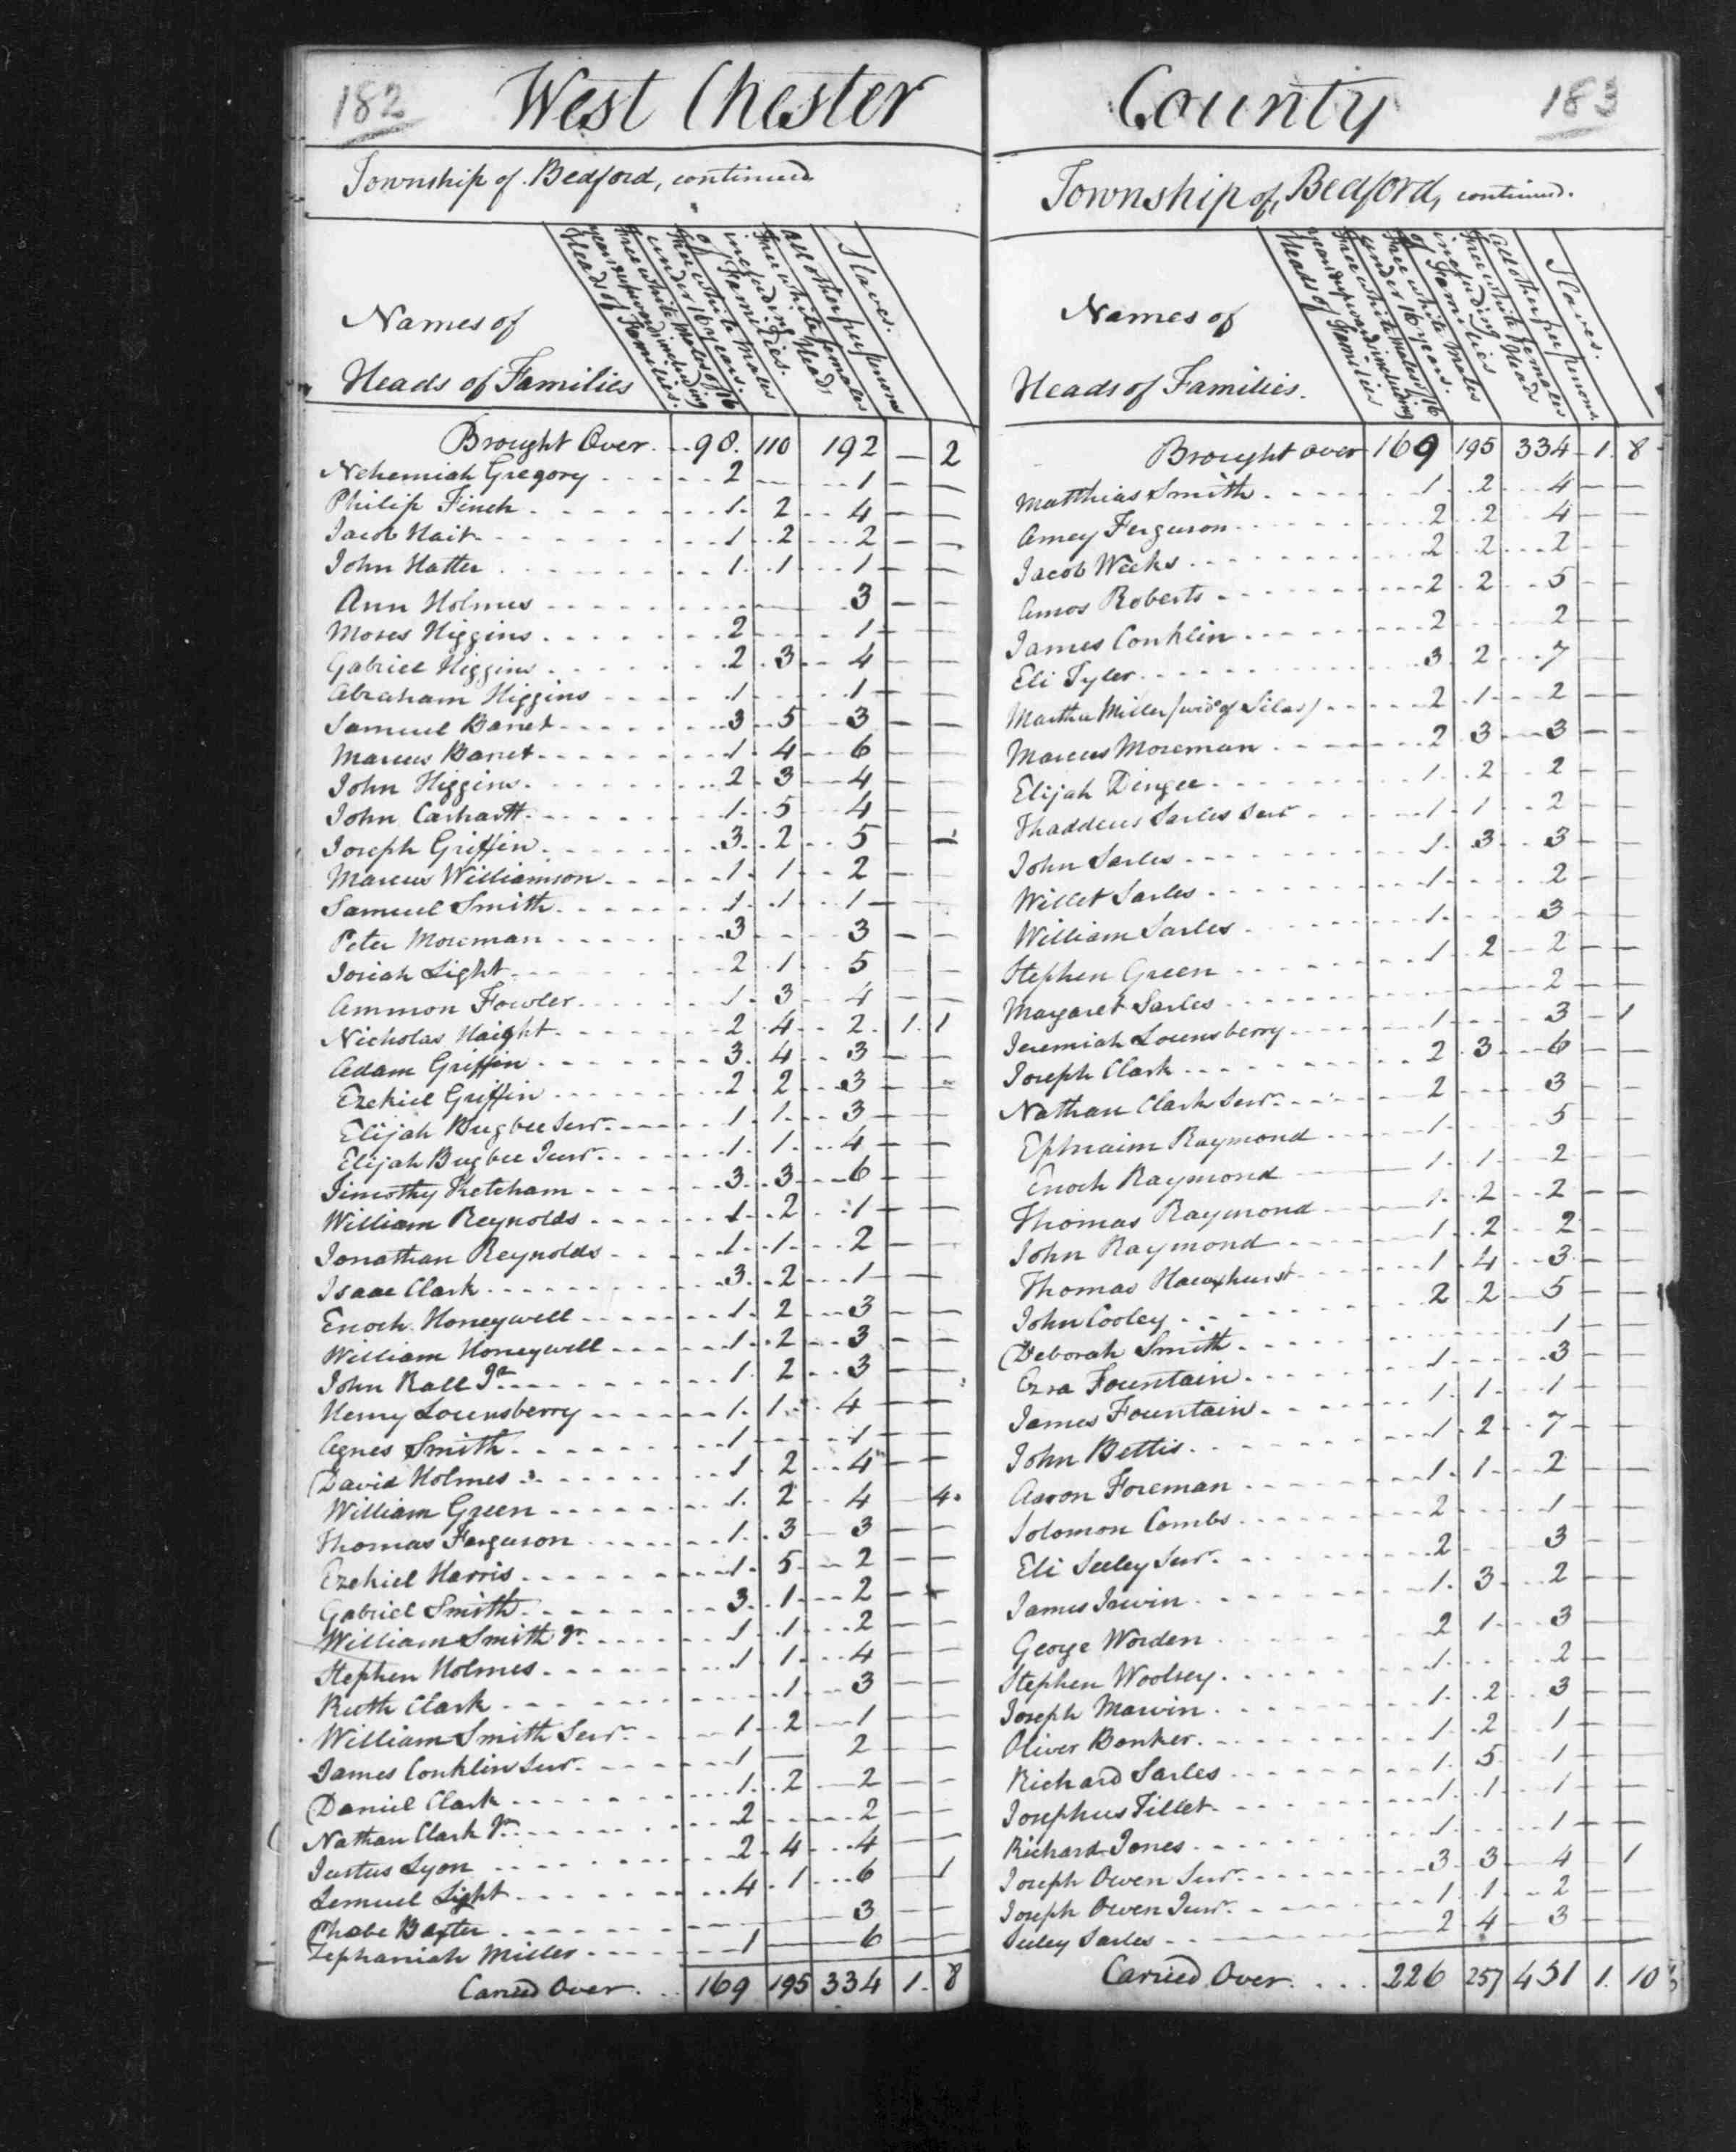 182 West Chester
Township of Bedford, continued
Names of
Heads of Families
Heads of Families.
Free white Males of 16 years & upward including
Free white Males under 16 years.
Free white females including Heads of Families.
All other free persons
Slaves.
Brought Over. 98. 110 192 — 2
Nehemiah Gregory 2 — 1 — —
Philip Finch 1. 2 4 — —
Jacob Hait 1 2 2 — —
John Hatter 1. 1 1 — —
Ann Holmes — 3 — —
Moses Higgins 2 1 — —
Gabriel Higgins 2 3 4 — —
Abraham Higgins 1 1 — —
Samuel Banet 3 5 3 — —
Marcus Banet 1 4 6 — —
John Higgins 2 3 4 — —
John Carhartt 1. 5 4 — —
Joseph Griffin 3. 2 5 — —
Marcus Williamson 1 1 2 — —
Samuel Smith 1 1 1 — —
Peter Moreman 3 3 — —
Josiah Light 2 1 5 — —
Ammon Fowler 1 3 4 — —
Nicholas Haight 2 4 2. 1. 1
Adam Griffin 3. 4 3 — —
Ezekiel Griffin 2 2 3 — —
Elijah Bugbee Senr. 1 1 3 — —
Elijah Bugbee Junr. 1. 1. 4 — —
Timothy Ketcham 3. 3 6 — —
William Reynolds 1 2 1 — —
Jonathan Reynolds 1 1 2 — —
Isaac Clark 3. 2 1 — —
Enoch Honeywell 1. 2 3 — —
William Honeywell 1. 2 3 — —
John Rall Jr. 1. 2 3 — —
Henry Lounsberry 1. 1. 4 — —
Agnes Smith 1 1 — —
David Holmes 1. 2 4 — —
William Green 1. 2 4 — 4.
Thomas Ferguson 1. 3 3 — —
Ezekiel Harris 1. 5 2 — —
Gabriel Smith 3. 1 2 — —
William Smith Jr. 1 1 2 — —
Stephen Holmes 1 1 4 — —
Ruth Clark 1 3 — —
William Smith Senr. 1 2 1 — —
James Conklin Senr. 1 — 2 — —
Daniel Clark 1. 2 2 — —
Nathan Clark Jr. 2 2 — —
Justus Lyon 2 4 4 — —
Lemuel Light 4 1 6 — 1
Phabe Baxter — 3 — —
Zephaniah Miller 1 — 6 — —
Carried Over. 169 195 334 1. 8
County 183
Township of, Bedford, continued.
Names of
Heads of Families.
Heads of Families
Free white Males of 16 years & upward including
Free white Males under 16 years.
Free white females including Heads of Families
All other free persons.
Slaves.
Brought over 169 195 334 1. 8
Matthias Smith 1. 2 4 — —
Amey Ferguson 2 2 4 — —
Jacob Weeks 2 2 2 — —
Amos Roberts 2 2 5 — —
James Conklin 2 2 — —
Eli Tyler 3 2 7 — —
Martha Miller (wid. of Silas) 2 1 2 — —
Marcus Moreman 2 3 3 — —
Elijah Dingee 1. 2 2 — —
Thaddeus Sarles Senr 1 1 2 — —
John Sarles 1. 3 3 — —
Willet Sarles 1 2 — —
William Sarles 1. 3 — —
Stephen Green 1 2 2 — —
Margaret Sarles 2 — —
Jeremiah Lounsberry 1 3 — 1
Joseph Clark 2 3 6 — —
Nathan Clark Senr. 2 3 — —
Ephraim Raymond 1. 5 — —
Enoch Raymond 1. 1 2 — —
Thomas Raymond 1. 2 2 — —
John Raymond 1 2 2 — —
Thomas Hauxhurst 1 4 3 — —
John Cooley 2 2 5 — —
Deborah Smith 1 — —
Ezra Fountain 1 3 — —
James Fountain 1 1 1 — —
John Bettis 1 2 7 — —
Aaron Foreman 1. 1 2 — —
Solomon Combs 2 1 — —
Eli Seeley Senr. 2 3 — —
James Irwin 1. 3 2 — —
George Worden 2 1 3 — —
Stephen Woolsey 1 2 — —
Joseph Marvin 1. 2 3 — —
Oliver Bonker 1 2 1 — —
Richard Sarles 1. 5 1 — —
Josephus Tillet 1 1 1 — —
Richard Jones 1. 1 — —
Joseph Owen Senr. 3 3 4 — 1
Joseph Owen Junr. 1 1 2 — —
Seeley Sarles 2 4 3 — —
Carried Over. 226 257 451 1. 10